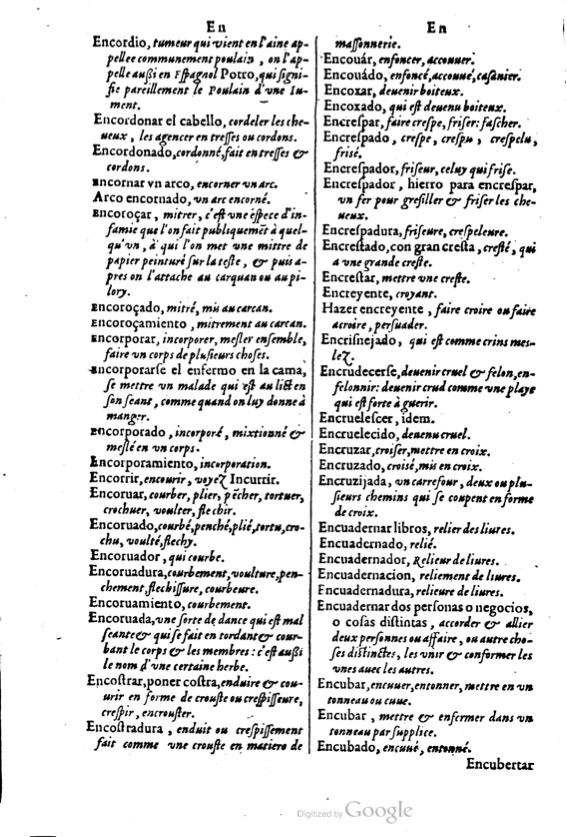 En
Encordio, tumeur qui vient en l'aine ap-
pellee communement poulain, on l'ap-
pelle außi en Espagnol Potro, qui signi-
fie pareillement le Poulain d'vne Iu-
ment.
Encordonar el cabello, cordeler les che-
ueux, les agencer en tresses ou cordons.
Encordonado, cordonné, fait en tresses &
cordons.
Encornar vn arco, encorner vn arc.
Arco encornado, vn arc encorné.
Encoroçar, mitrer, c'est vne espece d'in-
famie que l'on fait publiquemēt à quel-
qu'vn, à qui l'on met vne mittre de
papier peinturé sur la teste, & puis a-
pres on l'attache au carquan ou au pi-
lory.
Encoroçado, mitré, mis au carcan.
Encoroçamiento, mitrement au carcan.
Encorporar, incorporer, mesler ensemble,
faire vn corps de plusieurs choses.
Encorporarse el enfermo en la cama,
se mettre vn malade qui est au lict en
son seant, comme quand on luy donne à
manger.
Encorporado, incorporé, mixtionné &
meslé en vn corps.
Encorporamiento, incorporation.
Encorrir, encourir, voyez Incurrir.
Encoruar, courber, plier, pēcher, tortuer,
crochuer, voulter, flechir.
Encoruado, courbé, penché, plié, tortu, cro-
chu, voulté, flechy.
Encoruador, qui courbe.
Encoruadura, courbement, voulture, pen-
chement, flechissure, courbeure.
Encoruamiento, courbement.
Encoruada, vne sorte de dance qui est mal
seante & qui se fait en tordant & cour-
bant le corps & les membres: c'est außi
le nom d'vne certaine herbe.
Encostrar, poner costra, enduire & cou-
urir en forme de crouste ou crespisseure,
crespir, encrouster.
Encostradura, enduit ou crespissement
fait comme vne crouste en matiere de
En
massonnerie.
Encouár, enfoncer, accouuer.
Encouádo, enfoncé, accoué, casanier.
Encoxar, deuenir boiteux.
Encoxado, qui est deuenu boiteux.
Encrespar, faire crespe, friser: fascher.
Encrespado, crespe, crespu, crespelu,
frisé.
Encrespador, friseur, celuy qui frise.
Encrespador, hierro para encrespar,
vn fer pour gresiller & friser les che-
ueux.
Encrespadura, friseure, crespeleure.
Encrestado, con gran cresta, cresté, qui
a vne grande creste.
Encrestar, mettre vne creste.
Encreyente, croyant.
Hazer encreyente, faire croire ou faire
acroire, persuader.
Encrisnejado, qui est comme crins mes-
lez.
Encrudecerse, deuenir cruel & felon, en-
felonnir: deuenir crud comme vne playe
qui est forte à guerir.
Encruelescer, idem.
Encruelecido, deuenu cruel.
Encruzar, croiser, mettre en croix.
Encruzado, croisé, mis en croix.
Encruzijada, vn carrefour, deux ou plu-
sieurs chemins qui se coupent en forme
de croix.
Encuadernar libros, relier des liures.
Encuadernado, relié.
Encuadernador, Relieur de liures.
Encuadernacion, reliement de liures.
Encuadernadura, relieure de liures.
Encuadernar dos personas o negocios,
o cosas distintas, accorder & allier
deux personnes ou affaire, ou autre cho-
ses distinctes, les vnir & conformer les
vnes auec les autres.
Encubar, encuuer, entonner, mettre en vn
tonneau ou cuue.
Encubar, mettre & enfermer dans vn
tonneau par supplice.
Encubado, encuué, entonné.
Encubertar
Digitized by Google